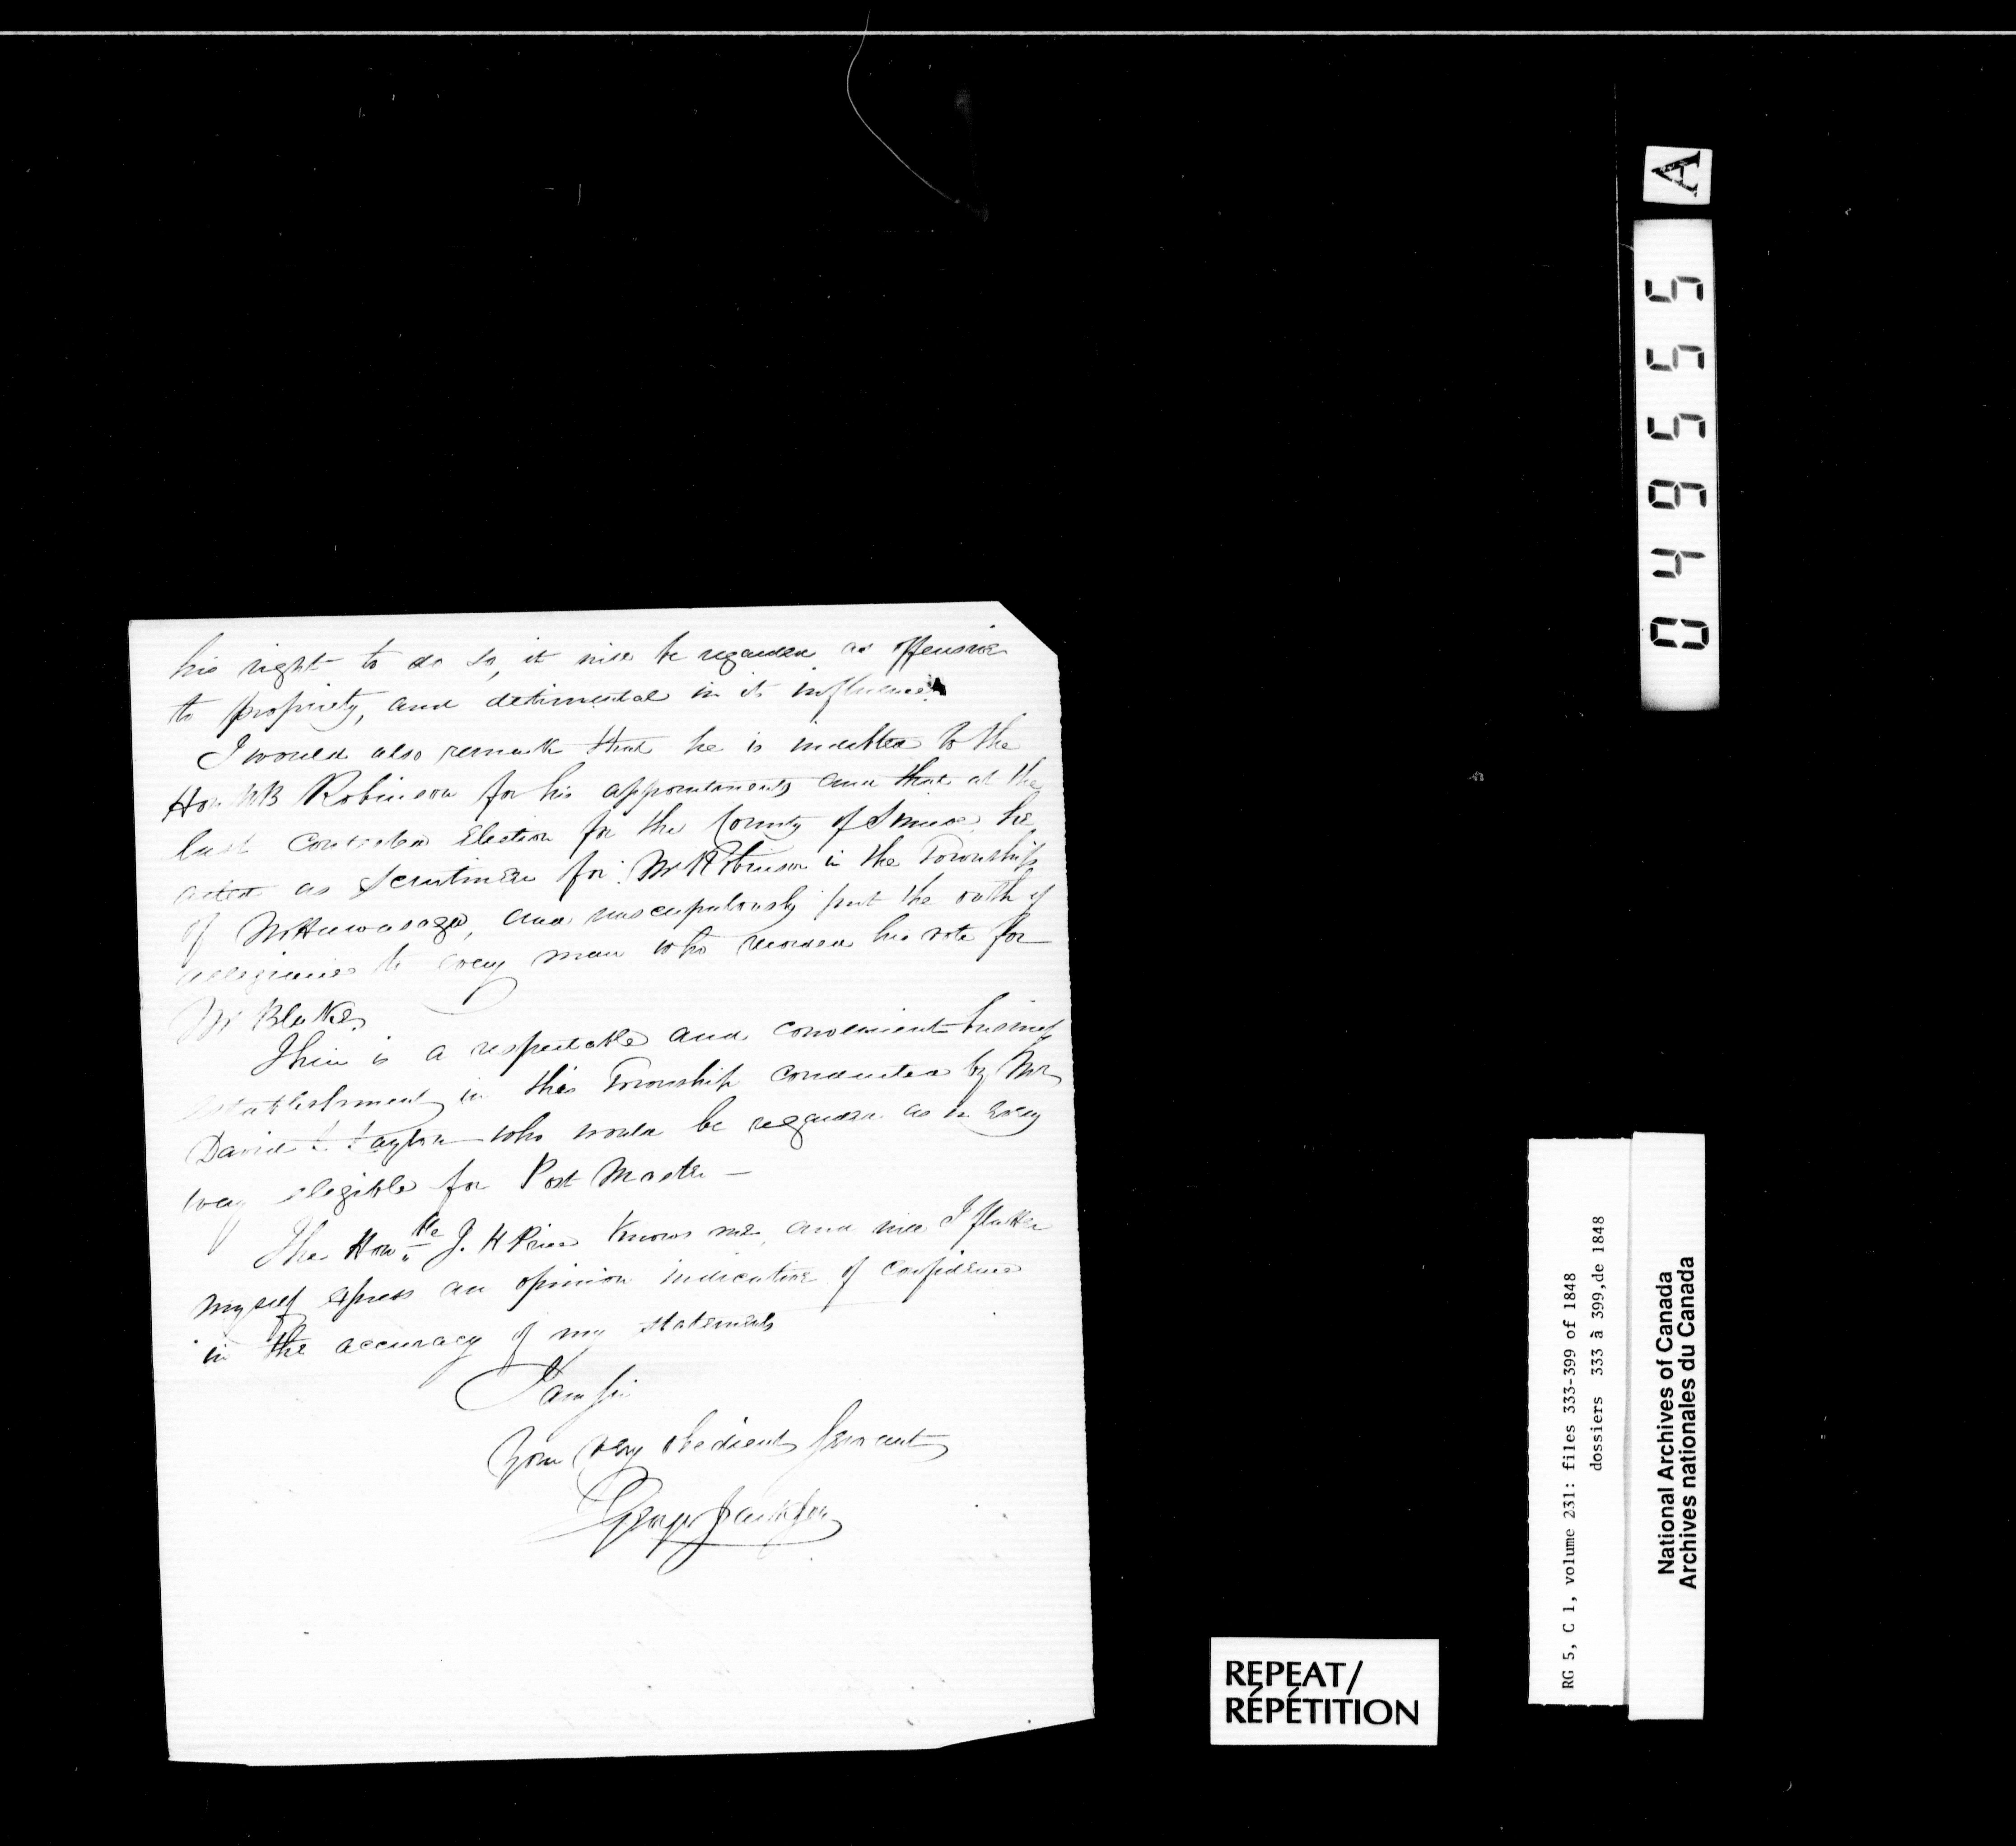 his right to do so, it will be regarded as offensive
to propriety, and detrimental in its influence
I would also remark that he is indebted to the
Hon WB Robinson for his appointment, and that at the
last contested Election for the County of Simcoe, he
acted as Scrutineer for Mr Robinson in the Township
of Nottawasaga, and unscrupulously put the oath of
allegiance to every man who recorded his vote for
Mr Blake,
There is a respectable and convenient business
establishment in this Township conducted by Mr
David Taylor who would be regarded as in every
way eligible for Post Master —
The Honble J. H Price knows me, and will I flatter
myself express an opinion indicative of confidence
in the accuracy of my statements
I am Sir
Your very obedient Servant
George Jackson
A
0496555
RG 5, C 1, volume 231: files 333-399 of 1848
dossiers 333 à 399,de 1848
National Archives of Canada
Archives nationales du Canada
REPEAT/
RÉPÉTITION